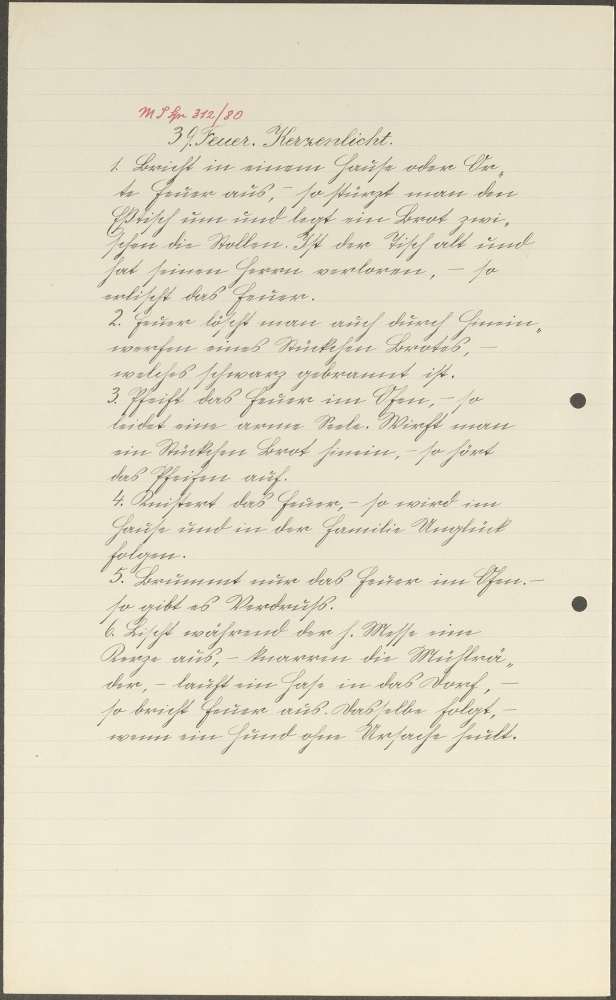 M S Gr 312/80
39. Feuer. Kerzenlicht.
1. Bricht in einem Hause oder Or„
te Feuer aus, – so stürzt man den
Eßtisch um und legt ein Brot zwi„
schen die Stollen. Ist der Tisch alt und
hat seinen Herrn verloren, – so
erlischt das Feuer.
2. Feuer löscht man auch durch Hinein„
werfen eines Stückchen Brotes, –
welches schwarz gebrannt ist.
3. Pfeift das Feuer im Ofen, – so
leidet eine arme Seele. Wirft man
ein Stückchen Brot hinein, – so hört
das Pfeifen auf.
4. Knistert das Feuer, – so wird im
Hause und in der Familie Unglück
folgen.
5. Brummt nur das Feuer im Ofen. –
so gibt es Verdruß.
6. Lischt während der h. Messe eine
Kerze aus, – knarren die Mühlrä„
der, – lauft ein Hase in das Dorf, –
so bricht Feuer aus. Dasselbe folgt, –
wenn ein Hund ohne Ursache heult.